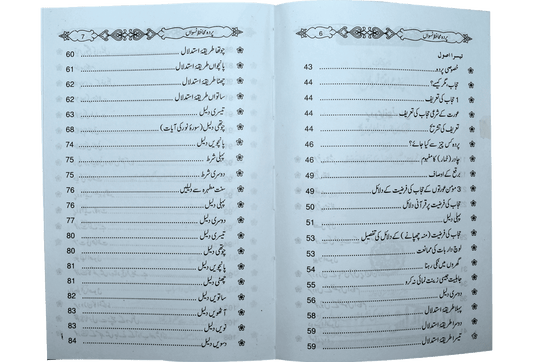 پردہ محافظ نسواں 6
تیسرا اصول
خصوصی پردہ 43
حجاب، مگر کیسے؟ 44
1 حجاب کی تعریف 44
عورت کے شرعی حجاب کی تعریف 44
تعریف کی تشریح 44
پردہ کس چیز سے کیا جائے؟ 46
چادر (خمار) کا مفہوم 46
برقع کے اوصاف 49
3 مومن عورتوں کے حجاب کی فرضیت کے دلائل 49
حجاب کی فرضیت پر قرآنی دلائل 50
پہلی دلیل 51
حجاب کی فرضیت (منہ چھپانے) کے دلائل کی تفصیل 53
لوچ دار بات کی ممانعت 53
گھروں میں ٹکی رہنا 54
جاہلیت جیسی زینت نمائی نہ کرو 55
دوسری دلیل 57
پہلا طریقۂ استدلال 58
دوسرا طریقۂ استدلال 59
تیسرا طریقۂ استدلال 59
پردہ محافظ نسواں 7
چوتھا طریقۂ استدلال 60
پانچواں طریقۂ استدلال 61
چھٹا طریقۂ استدلال 62
ساتواں طریقۂ استدلال 62
تیسری دلیل 63
چوتھی دلیل (سورۂ نور کی آیات) 68
پانچویں دلیل 74
پہلی شرط 75
دوسری شرط 75
سنت مطہرہ سے دلیلیں 76
پہلی دلیل 76
دوسری دلیل 77
تیسری دلیل 80
چوتھی دلیل 80
پانچویں دلیل 81
چھٹی دلیل 81
ساتویں دلیل 82
آٹھویں دلیل 83
نویں دلیل 83
دسویں دلیل 84